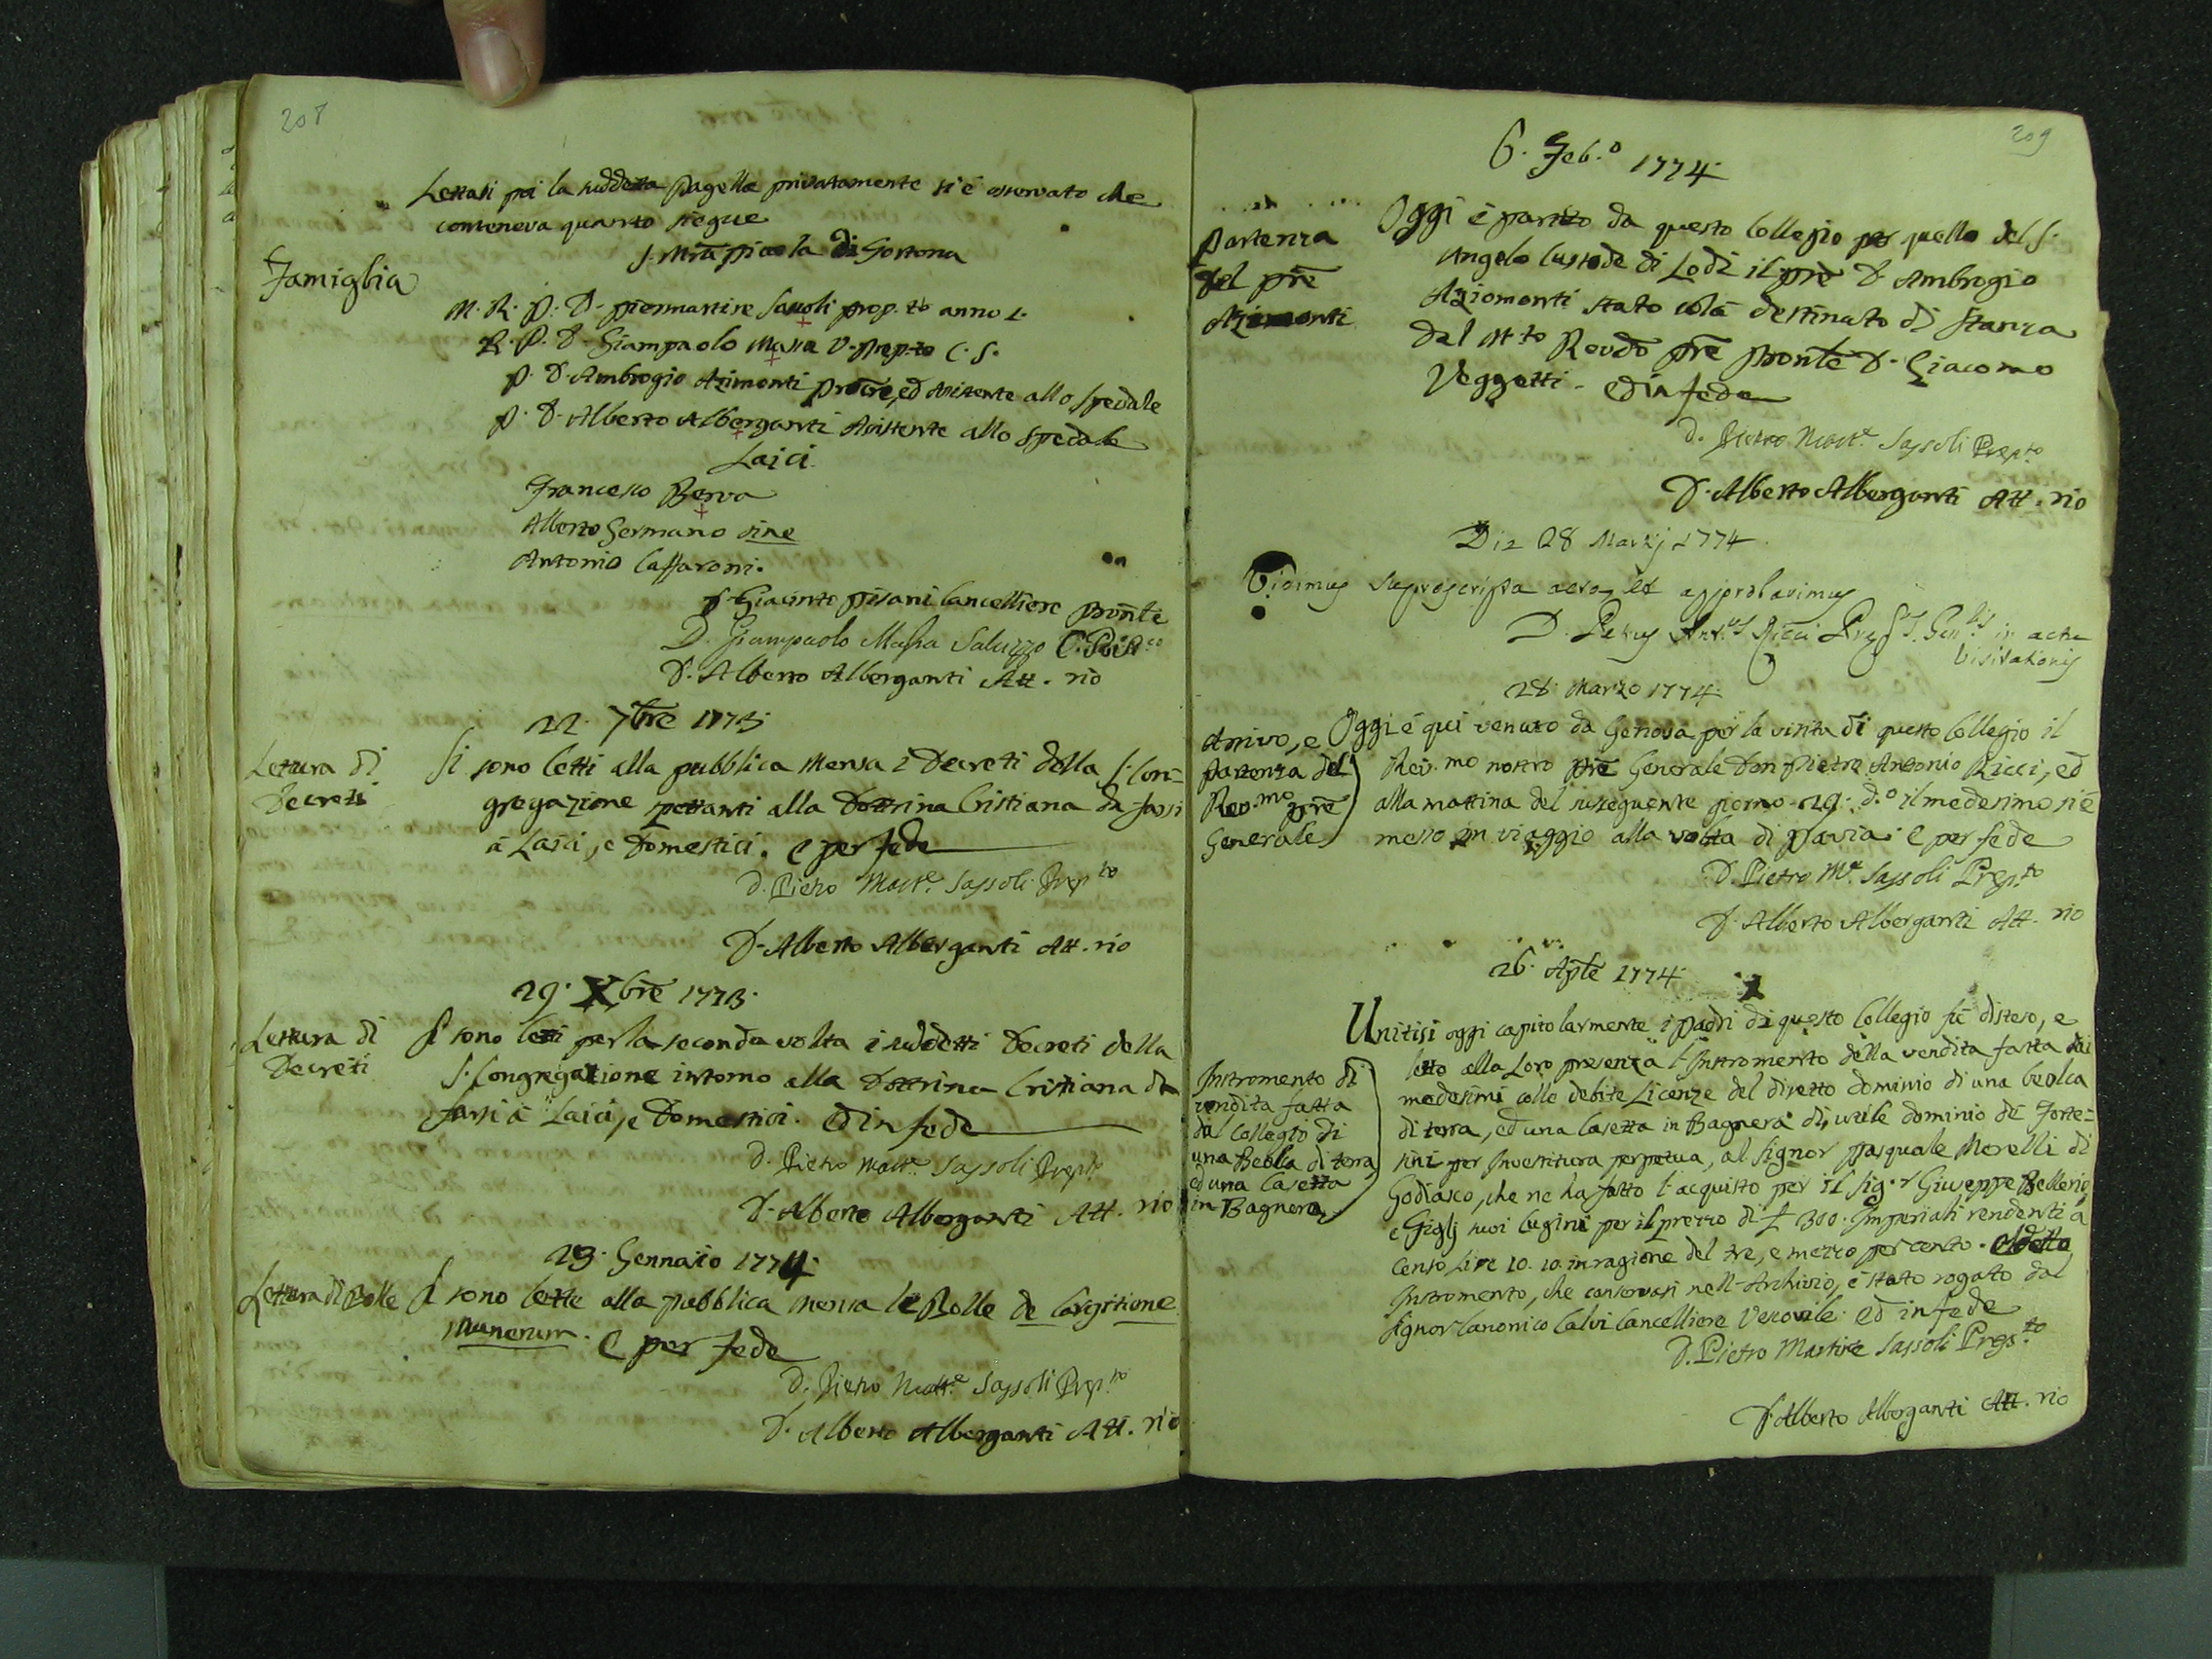 208
Lettasi poi la suddetta pagella privatamente si è osservato che
conteneva quanto siegue
S. Mria piccola di Tortona
Famiglia
M. R. P. D. Piermartire Sassoli prop.to anno 1.
R. P. D. Giampaolo Massa V. prep.to C. S.
P. D. Ambrogio Azimonti Procre, ed Assistente allo Spedale
P. D. Alberto Alberganti Assistente allo Spedale
Laici
Francesco Berva
Alberto Germano sine
Antonio Caffaroni.
D. Giacinto Pisani Cancelliere Pronle
D. Giampaolo Massa Saluzzo
D. Alberto Alberganti Att.rio
22. 7bre 1773.
Lettura di
Decreti
Si sono letti alla pubblica Mensa i Decreti della S. Con=
gregazione spettanti alla Dottrina Cristiana da farsi
à Laici, e Domestici. e per fede
D. Pietro Mart.e Sassoli Prep.to
D. Alberto Alberganti Att.rio
29. Xbre 1773.
Lettura di
Decreti
Si sono letti per la seconda volta i suddetti Decreti della
S. Congregatione intorno alla Dottrina Cristiana da
farsi à Laici, e Domestici. ed in fede
D. Pietro Mart.e Sassoli Prep.to
D. Alberto Alberganti Att.rio
29. Gennaio 1774.
Lettura di Bolle
Si sono lette alla pubblica Mensa le Bolle de largitione
munerum. e per fede
D. Pietro Mart.e Sassoli Prep.to
D. Alberto Alberganti Att.rio
209
6. Feb.o 1774.
Partenza
del pre
Azimonti
Oggi è partito da questo Collegio per quello del S.
Angelo Custode di Lodi il pre D. Ambrogio
Aziomonti stato colà destinato di Stanza
dal M.to Revdo pre Pronle D. Giacomo
Veggetti. ed in fede
D. Pietro Mart.e Sassoli Prep.to
D. Alberto Alberganti Att.rio
Die 28 Martij 1774.
Vidimus suprascripta acta, et approbavimus
D. Petrus Ant.us Ricci Prep.s Gen.lis in actu
Visitationis
28. Marzo 1774.
Arrivo, e
partenza del
Rev.mo pre
Generale
Oggi è qui venuto da Genova per la visita di questo Collegio il
Rev.mo nostro pre Generale Don Pietro Antonio Ricci, ed
alla mattina del susseguente giorno 29. d.o il medesimo si è
messo in viaggio alla volta di Pavia. e per fede
D. Pietro M.e Sassoli Prep.to
D. Alberto Alberganti Att.rio
26. Aple 1774.
Instromento di
vendita fatta
dal Collegio di
una Beolca di terra,
ed una Casetta
in Bagnera
Unitisi oggi capitolarmente i padri di questo Collegio fù disteso, e
letto alla Loro presenza l'Instromento della vendita fatta dai
medesimi colle debite Licenze del diretto dominio di una beolca
di terra, ed una Casetta in Bagnera di utile dominio de Forte=
sini per Investitura perpetua, al Signor Pasquale Morelli di
Godiasco, che ne ha fatto l'acquisto per il Sig.r Giuseppe Bellerio,
e Gigli suoi Cugini per il prezzo di £ 300. Imperiali rendenti a
Censo Lire 10. 10. in ragione del tre, e mezzo per cento. Il detto
Instromento, che conservasi nell'Archivio, è stato rogato dal
Signor Canonico Calvi Cancelliere Vescovile. ed in fede
D. Pietro Martire Sassoli Prep.to
D. Alberto Alberganti Att.rio